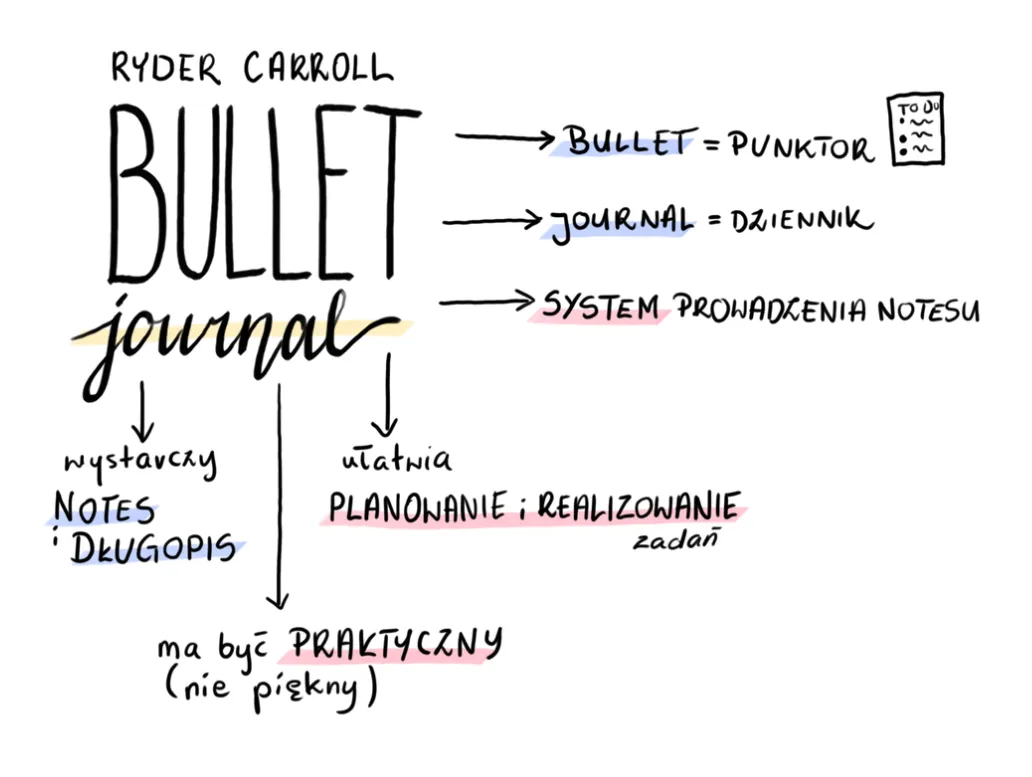 RYDER CARROLL
BULLET
journal
BULLET = PUNKTOR
TO DO
JOURNAL = DZIENNIK
SYSTEM PROWADZENIA NOTESU
wystarczy
NOTES
i DŁUGOPIS
ułatwia
PLANOWANIE i REALIZOWANIE
zadań
ma być PRAKTYCZNY
(nie piękny)